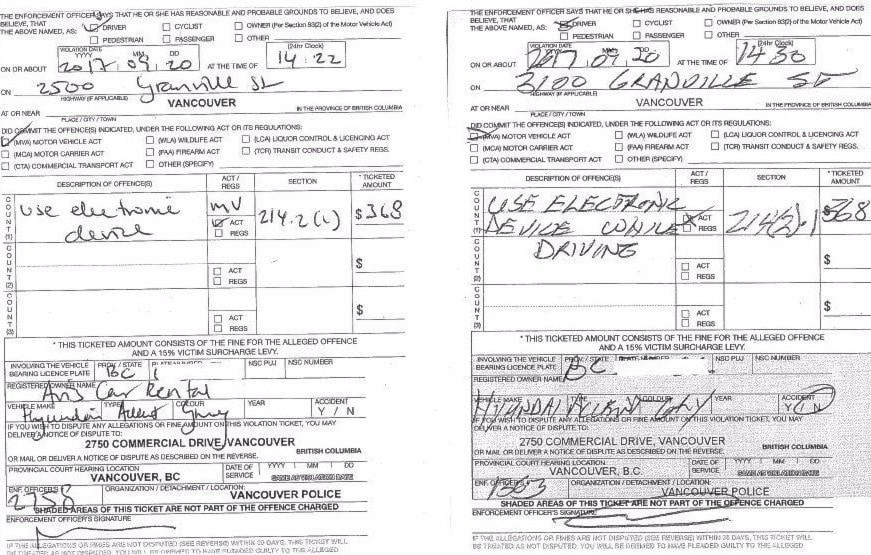 THE ENFORCEMENT OFFICER SAYS THAT HE OR SHE HAS REASONABLE AND PROBABLE GROUNDS TO BELIEVE, AND DOES
BELIEVE, THAT
THE ABOVE NAMED, AS:
DRIVER CYCLIST OWNER (Per Section 83(2) of the Motor Vehicle Act)
PEDESTRIAN PASSENGER OTHER
VIOLATION DATE
YYYY MM DD (24hr Clock)
ON OR ABOUT 2017 09 20 AT THE TIME OF 14:22
ON 2500 Granville St
HIGHWAY (IF APPLICABLE)
AT OR NEAR VANCOUVER IN THE PROVINCE OF BRITISH COLUMBIA
PLACE / CITY / TOWN
DID COMMIT THE OFFENCE(S) INDICATED, UNDER THE FOLLOWING ACT OR ITS REGULATIONS:
(MVA) MOTOR VEHICLE ACT (WLA) WILDLIFE ACT (LCA) LIQUOR CONTROL & LICENCING ACT
(MCA) MOTOR CARRIER ACT (FAA) FIREARM ACT (TCR) TRANSIT CONDUCT & SAFETY REGS.
(CTA) COMMERCIAL TRANSPORT ACT OTHER (SPECIFY)
DESCRIPTION OF OFFENCE(S) ACT / REGS SECTION * TICKETED AMOUNT
COUNT (1) Use electronic device MV ACT REGS 214.2(1) $368
COUNT (2) ACT REGS $
COUNT (3) ACT REGS $
* THIS TICKETED AMOUNT CONSISTS OF THE FINE FOR THE ALLEGED OFFENCE
AND A 15% VICTIM SURCHARGE LEVY.
INVOLVING THE VEHICLE PROV / STATE NSC PUJ NSC NUMBER
BEARING LICENCE PLATE BC
REGISTERED OWNER NAME
Car Rental
VEHICLE MAKE TYPE COLOUR YEAR ACCIDENT
Hyundai Accent Grey Y / N
IF YOU WISH TO DISPUTE ANY ALLEGATIONS OR FINE AMOUNT ON THIS VIOLATION TICKET, YOU MAY
DELIVER A NOTICE OF DISPUTE TO:
2750 COMMERCIAL DRIVE, VANCOUVER
BRITISH COLUMBIA
OR MAIL OR DELIVER A NOTICE OF DISPUTE AS DESCRIBED ON THE REVERSE.
PROVINCIAL COURT HEARING LOCATION DATE OF SERVICE YYYY MM DD
VANCOUVER, BC SAME AS VIOLATION DATE
ENF. OFFICER'S ORGANIZATION / DETACHMENT / LOCATION
2758 VANCOUVER POLICE
SHADED AREAS OF THIS TICKET ARE NOT PART OF THE OFFENCE CHARGED
ENFORCEMENT OFFICER'S SIGNATURE
IF THE ALLEGATIONS OR FINES ARE NOT DISPUTED (SEE REVERSE) WITHIN 30 DAYS, THIS TICKET WILL
BE TREATED AS NOT DISPUTED, YOU WILL BE DEEMED TO HAVE PLEADED GUILTY TO THE ALLEGED
THE ENFORCEMENT OFFICER SAYS THAT HE OR SHE HAS REASONABLE AND PROBABLE GROUNDS TO BELIEVE, AND DOES
BELIEVE, THAT
THE ABOVE NAMED, AS:
DRIVER CYCLIST OWNER (Per Section 83(2) of the Motor Vehicle Act)
PEDESTRIAN PASSENGER OTHER
VIOLATION DATE
YYYY MM DD (24hr Clock)
ON OR ABOUT 2017 09 20 AT THE TIME OF 1430
ON 3100 GRANVILLE ST
HIGHWAY (IF APPLICABLE)
AT OR NEAR VANCOUVER IN THE PROVINCE OF BRITISH COLUMBIA
PLACE / CITY / TOWN
DID COMMIT THE OFFENCE(S) INDICATED, UNDER THE FOLLOWING ACT OR ITS REGULATIONS:
(MVA) MOTOR VEHICLE ACT (WLA) WILDLIFE ACT (LCA) LIQUOR CONTROL & LICENCING ACT
(MCA) MOTOR CARRIER ACT (FAA) FIREARM ACT (TCR) TRANSIT CONDUCT & SAFETY REGS.
(CTA) COMMERCIAL TRANSPORT ACT OTHER (SPECIFY)
DESCRIPTION OF OFFENCE(S) ACT / REGS SECTION * TICKETED AMOUNT
COUNT (1) USE ELECTRONIC DEVICE WHILE DRIVING ACT REGS 214(2).1 $368
COUNT (2) ACT REGS $
COUNT (3) ACT REGS $
* THIS TICKETED AMOUNT CONSISTS OF THE FINE FOR THE ALLEGED OFFENCE
AND A 15% VICTIM SURCHARGE LEVY.
INVOLVING THE VEHICLE PROV / STATE NSC PUJ NSC NUMBER
BEARING LICENCE PLATE BC
REGISTERED OWNER NAME
VEHICLE MAKE TYPE COLOUR YEAR ACCIDENT
HYUNDAI ACCENT GRY Y / N
IF YOU WISH TO DISPUTE ANY ALLEGATIONS OR FINE AMOUNT ON THIS VIOLATION TICKET, YOU MAY
DELIVER A NOTICE OF DISPUTE TO:
2750 COMMERCIAL DRIVE, VANCOUVER
BRITISH COLUMBIA
OR MAIL OR DELIVER A NOTICE OF DISPUTE AS DESCRIBED ON THE REVERSE.
PROVINCIAL COURT HEARING LOCATION DATE OF SERVICE YYYY MM DD
VANCOUVER, B.C. SAME AS VIOLATION DATE
ENF. OFFICER'S ORGANIZATION / DETACHMENT / LOCATION
VANCOUVER POLICE
SHADED AREAS OF THIS TICKET ARE NOT PART OF THE OFFENCE CHARGED
ENFORCEMENT OFFICER'S SIGNATURE
IF THE ALLEGATIONS OR FINES ARE NOT DISPUTED (SEE REVERSE) WITHIN 30 DAYS, THIS TICKET WILL
BE TREATED AS NOT DISPUTED, YOU WILL BE DEEMED TO HAVE PLEADED GUILTY TO THE ALLEGED